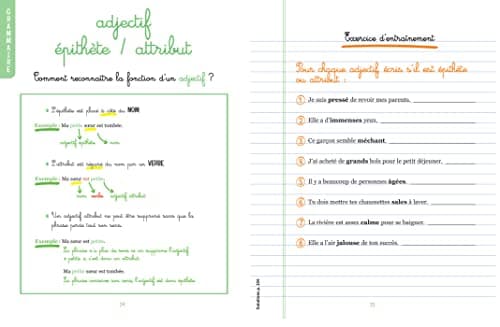 GRAMMAIRE
adjectif
épithète / attribut
Comment reconnaître la fonction d'un adjectif ?
L'épithète est placé à côté du NOM.
Exemple : Ma petite sœur est tombée.
adjectif épithète nom
L'attribut est séparé du nom par un VERBE.
Exemple : Ma sœur est petite.
nom verbe adjectif attribut
Un adjectif attribut ne peut être supprimé sans que la
phrase perde tout son sens.
Exemple : Ma sœur est petite.
La phrase n'a plus de sens si on supprime l'adjectif
« petite », c'est donc un attribut.
Ma petite sœur est tombée.
La phrase conserve son sens, l'adjectif est donc épithète.
74
Exercice d'entraînement
Pour chaque adjectif, écris s'il est épithète
ou attribut :
1 Je suis pressé de revoir mes parents.
2 Elle a d'immenses yeux.
3 Ce garçon semble méchant.
4 J'ai acheté de grands bols pour le petit déjeuner.
5 Il y a beaucoup de personnes âgées.
6 Tu dois mettre tes chaussettes sales à laver.
7 La rivière est assez calme pour se baigner.
8 Elle a l'air jalouse de ton succès.
75